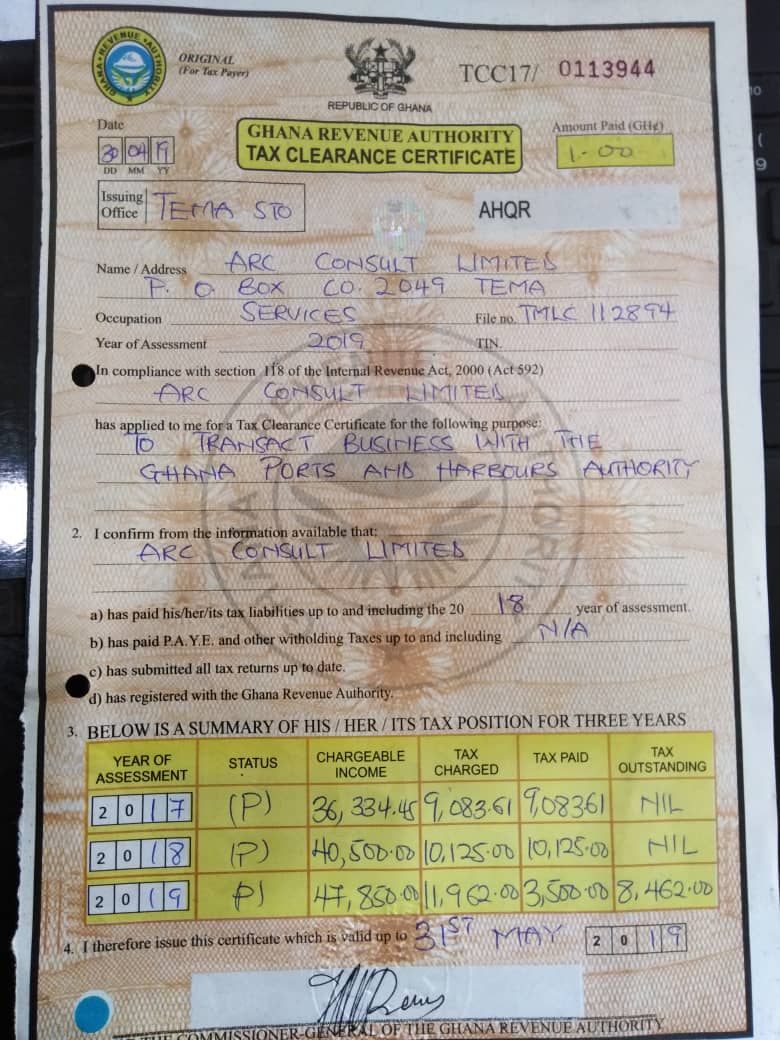 GHANA REVENUE AUTHORITY
ORIGINAL
(For Tax Payer)
REPUBLIC OF GHANA
TCC17/ 0113944
Date
30 04 19
DD MM YY
GHANA REVENUE AUTHORITY
TAX CLEARANCE CERTIFICATE
Amount Paid (GH¢)
1-00
Issuing Office TEMA STO
AHQR
Name / Address ARC CONSULT LIMITED
P. O. BOX CO. 2049 TEMA
Occupation SERVICES File no. TMLC 112894
Year of Assessment 2019 TIN.
In compliance with section 118 of the Internal Revenue Act, 2000 (Act 592)
ARC CONSULT LIMITED
has applied to me for a Tax Clearance Certificate for the following purpose:
TO TRANSACT BUSINESS WITH THE
GHANA PORTS AND HARBOURS AUTHORITY
2. I confirm from the information available that:
ARC CONSULT LIMITED
a) has paid his/her/its tax liabilities up to and including the 20 18 year of assessment.
b) has paid P.A.Y.E. and other witholding Taxes up to and including N/A
c) has submitted all tax returns up to date.
d) has registered with the Ghana Revenue Authority.
3. BELOW IS A SUMMARY OF HIS / HER / ITS TAX POSITION FOR THREE YEARS
YEAR OF ASSESSMENT STATUS CHARGEABLE INCOME TAX CHARGED TAX PAID TAX OUTSTANDING
2017 (P) 36,334.45 9,083.61 9,08361 NIL
2018 (P) 40,500.00 10,125.00 10,125.00 NIL
2019 P) 47,850.00 11,962.00 3,500.00 8,462.00
4. I therefore issue this certificate which is valid up to 31ST MAY 2019
COMMISSIONER-GENERAL OF THE GHANA REVENUE AUTHORITY